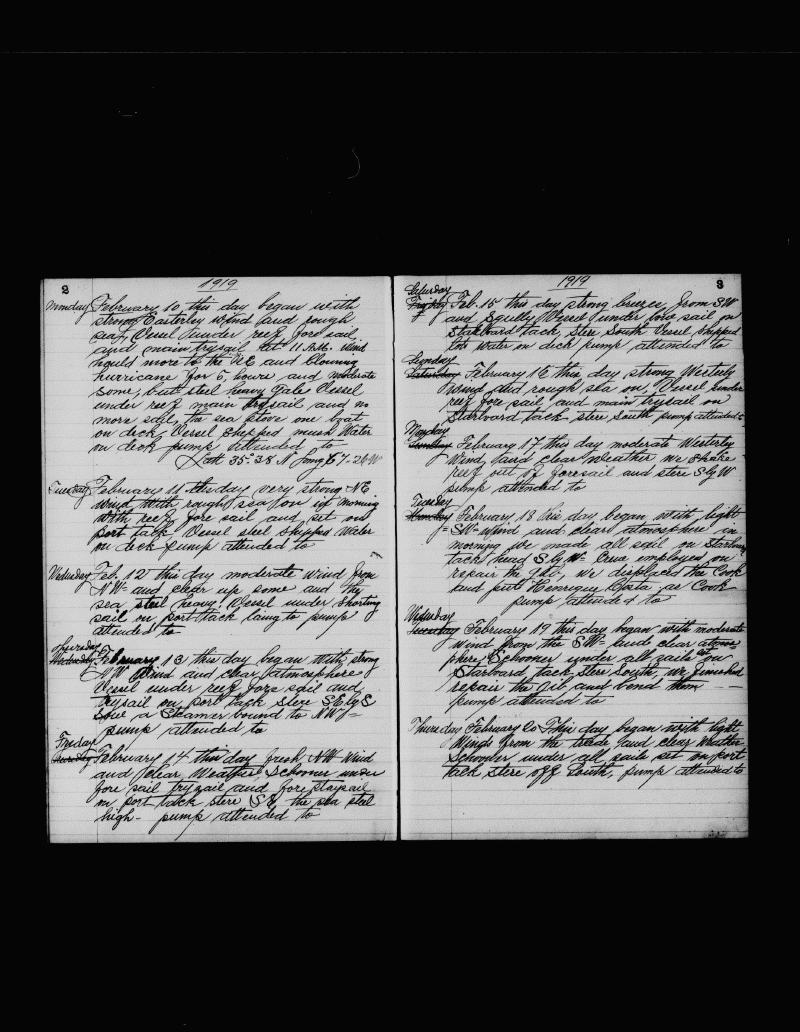 2
1919
Monday February 10 this day began with
strong Easterley wind and rough
sea, Vesel under reef fore sail
and main trysail at 11 A.M. Wind
hauld more to the NE and blowing
hurricane for 5 hours, and moderate
some, but steel heavy gale Vessel
under reef main trysail and no
more sail, the sea stove one boat
on deck, Vessel shepped much Water
on deck pump attended to
Latt 35°-38 N Long 67-26 W
Tuesday February 11 this day very strong NE
wind with rough sea on in morning
with reef fore sail and set on
port tack Vessel steel shipped Water
on deck pump attended to
Wednesday Feb. 12 this day moderate wind from
NW- and clear up some and the
sea steel heavy. Vessel under shorting
sail on port tack laing to pump
attended to
Thursday
Wednesday February 13 this day began with strong
NW Wind and clear atmosphere
Vessel under reef fore sail and
trysail on port tack stere SE by S
sow a Steamer bound to NW-
pump attended to
Friday
Thursday February 14 this day fresh NW wind
and Clear Weather, Schooner under
fore sail trysail and fore staysail
on port tack stere SE, the sea steel
high- pump attended to
3
1919
Saturday
Friday Feb. 15 this day strong breeze from SW
and squlley Vessel under fore sail on
starboard tack, Stere South Vessel shepped
water on deck pump attended to
Sunday
Saturday February 16 this day strong Westerly
wind and rough sea on, Vessel under
reef fore sail and main trysail on
Starboard tack- stere South pump attended-
Monday
Sunday February 17 this day moderate Westerley
Wind, and clear Weather we shake
reef out of foresail and stere S by W
pump attended to
Tuesday
Monday February 18 this day began with light
SW- wind and clear atmosphere in
morning we made all sail on starboard
tack head S by W- Crew employed on
repair the we displaced the Cook
and put Henrique Costa as Cook
pump attended to
Wednesday
Tuesday February 19 this day began with moderate
wind from the SW- and clear atmos-
phere, Schooner under all sails on
Starboard tack Stere South, we finished
repair the and bend them
pump attended to
Thursday February 20 This day began with light
Winds from the trade and clear Weather
Schooner under all sails set on port
tack stere off South, pump attended to